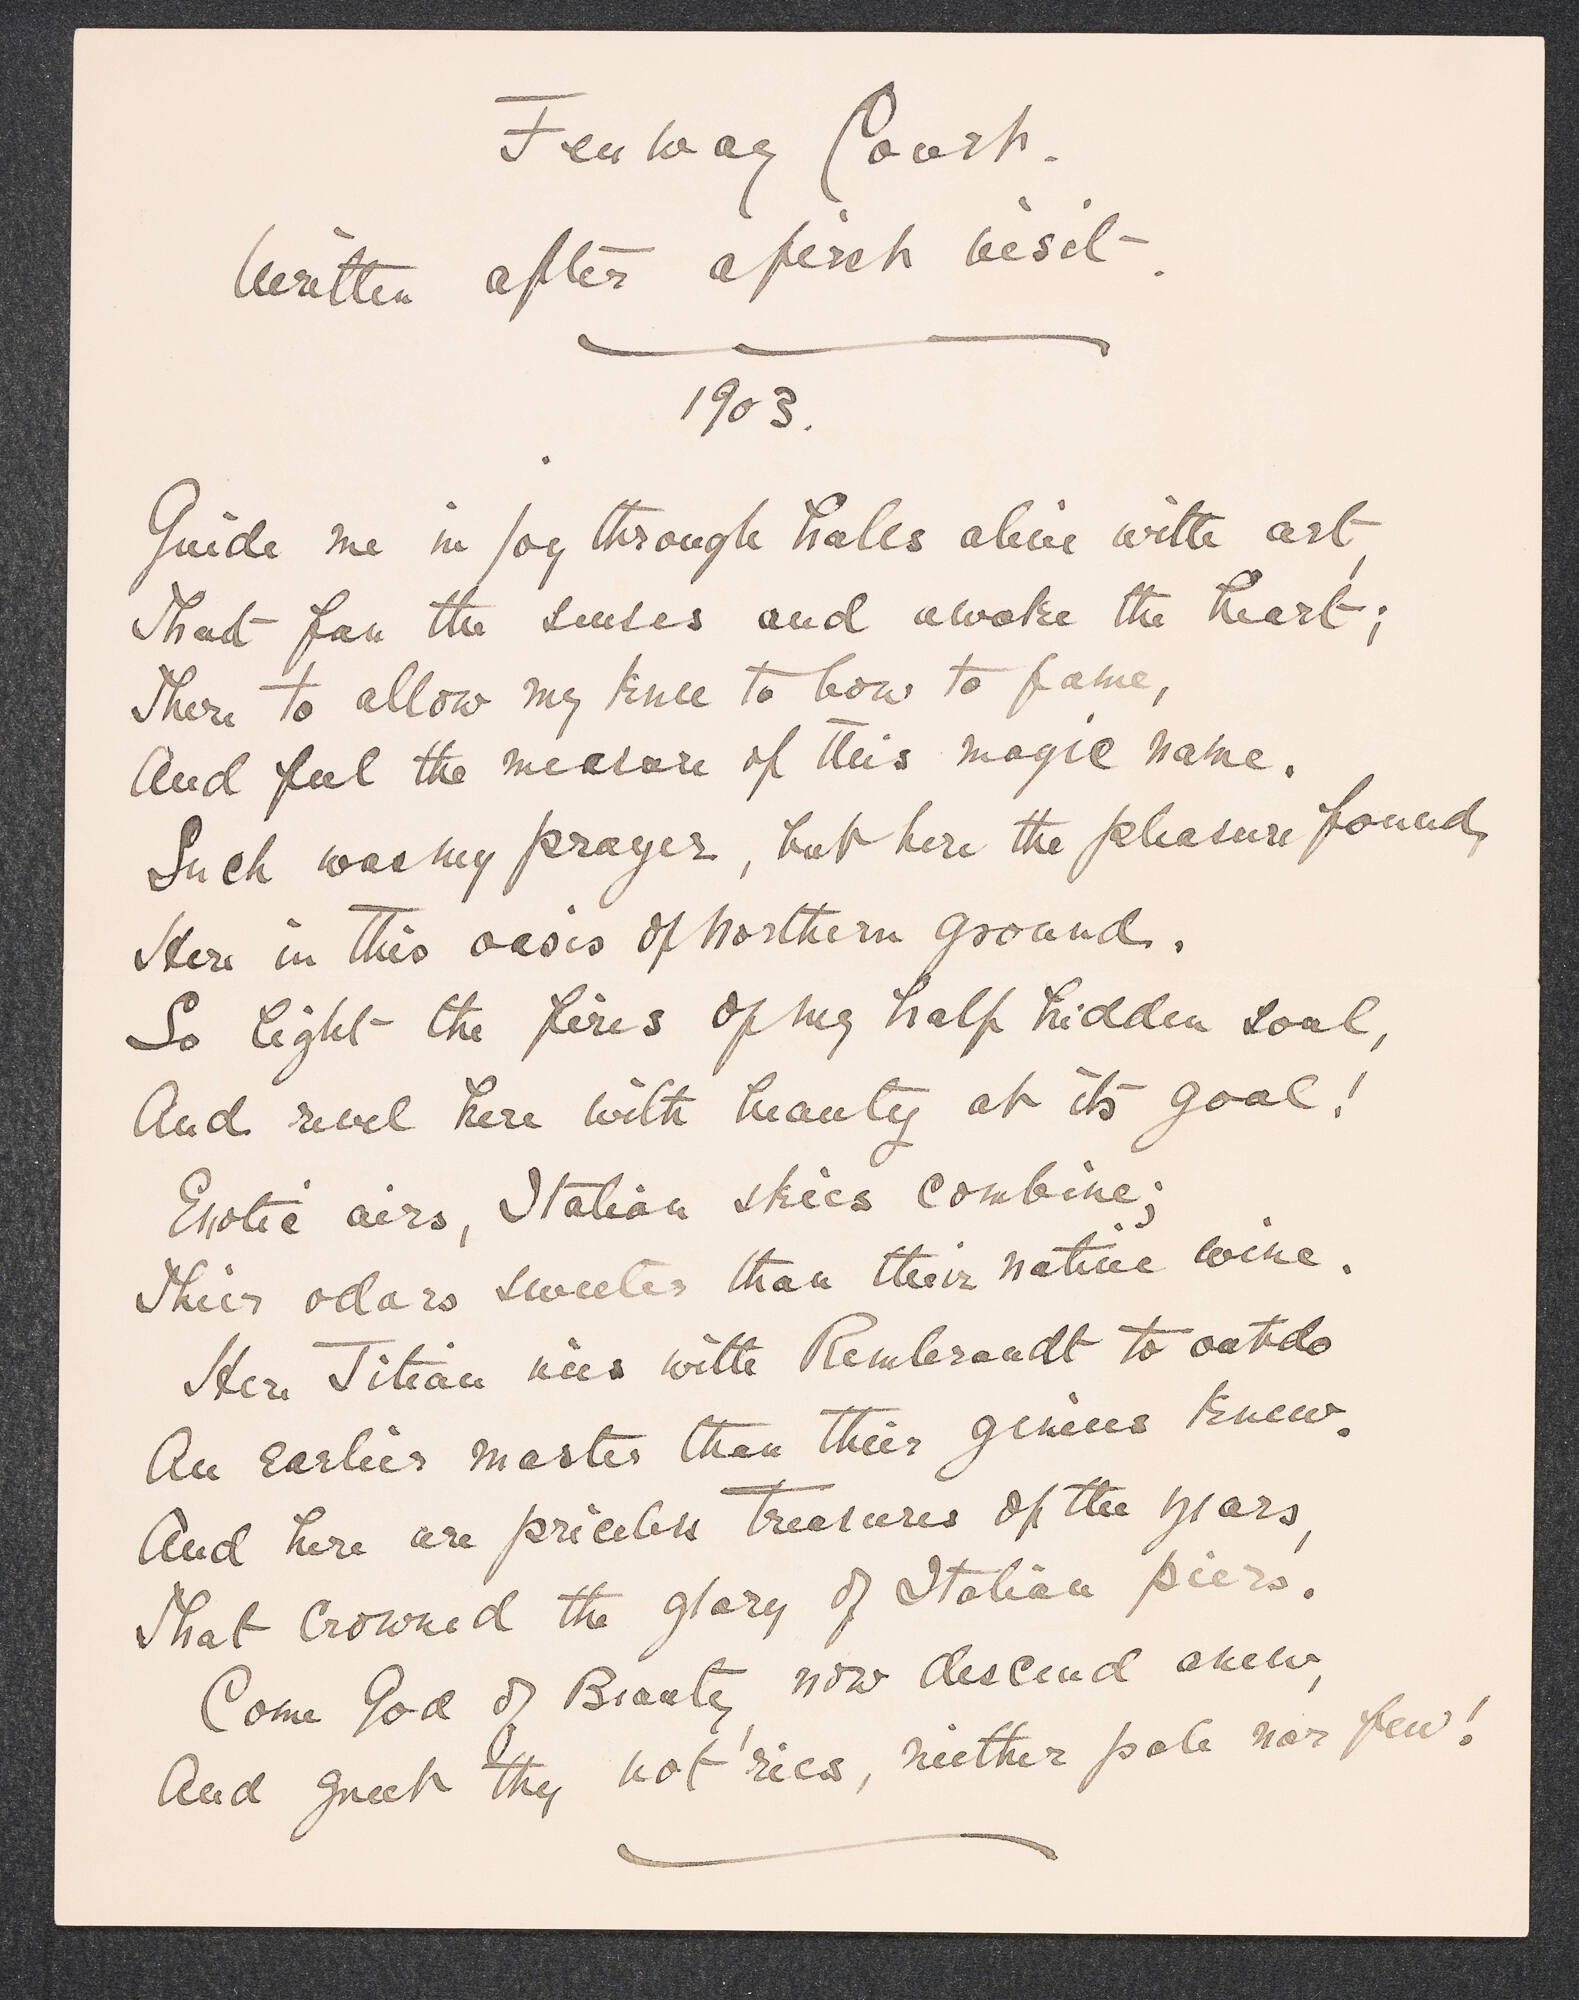 Fenway Court.
Written after a first visit.
1903.
Guide me in joy through halls alive with art,
That fan the senses and awake the heart;
There to allow my knee to bow to fame,
And feel the measure of this magic name.
Such was my prayer, but here the pleasure found,
Here in this oasis of Northern ground.
So light the fires of my half hidden soul,
And revel here with beauty at its goal!
Exotic airs, Italian skies combine;
Thier odors sweeter than their native wine.
Here Titian vies with Rembrandt to outdo
An earlier master than thier genius knew.
And here are priceless treasures of the years,
That crowned the glory of Italian piers.
Come God of Beauty, now descend anew,
And greet thy vot'ries, neither pale nor few!